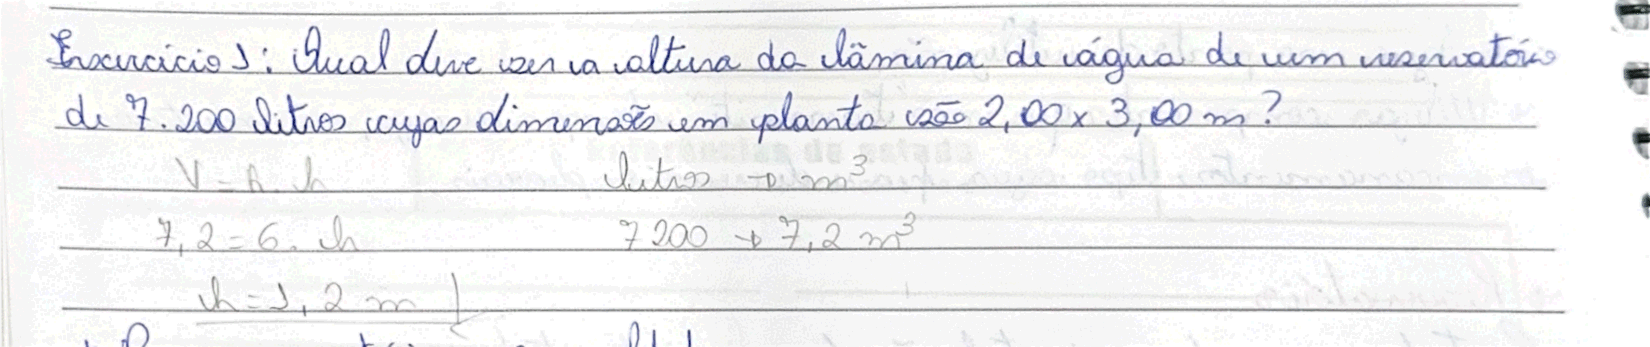 Exercício 1: Qual deve ser a altura da lâmina de água de um reservatório
de 7.200 litros cujas dimensões em planta são 2,00 x 3,00 m?
V = A. h litros → m³
7,2 = 6. h 7200 → 7,2 m³
h = 1,2 m